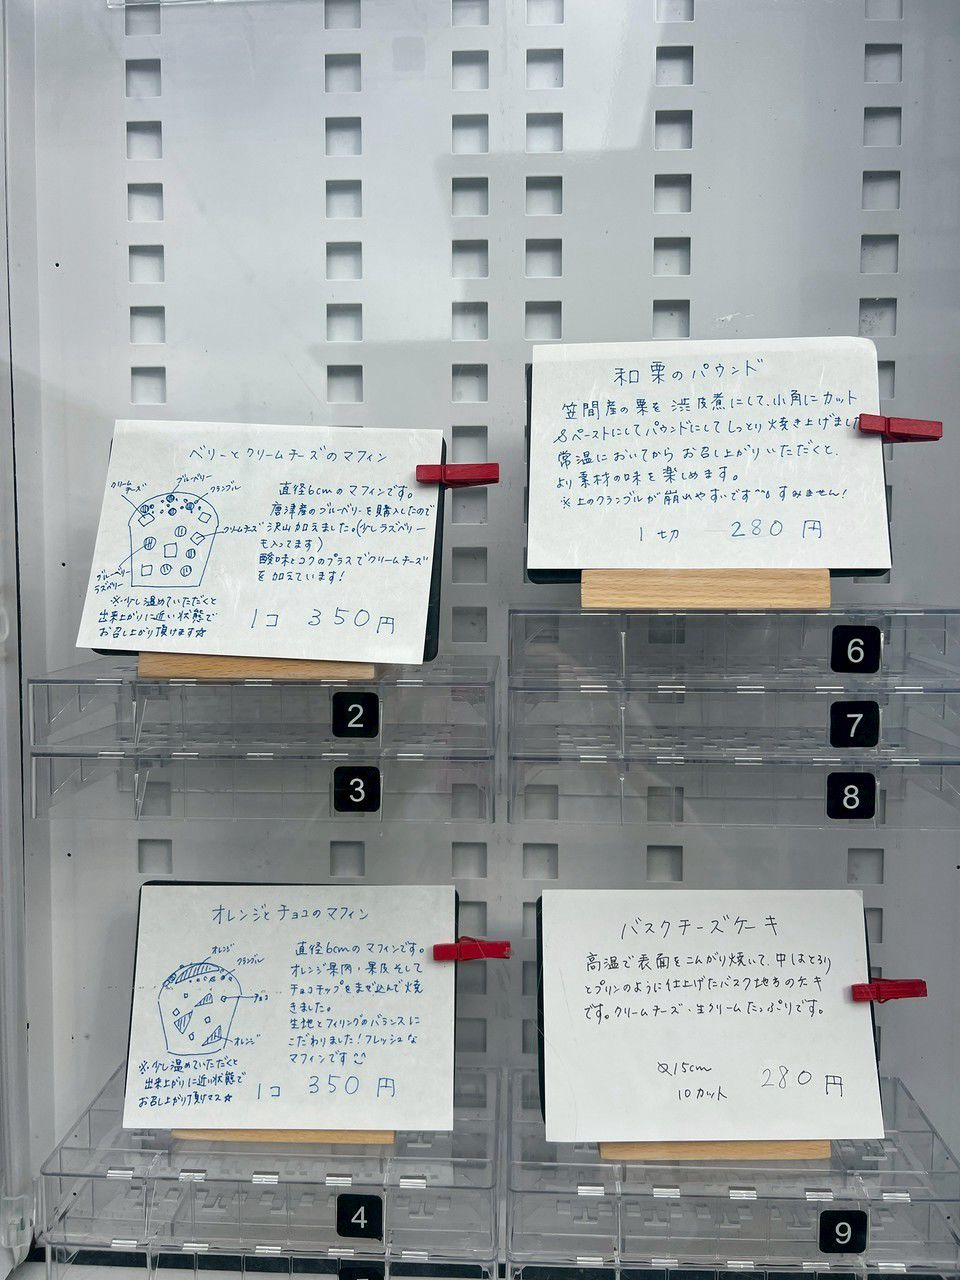 ベリーとクリームチーズのマフィン
クリーム
チーズ
ブルーベリー
クランブル
クリームチーズ
ブルーベリー
ラズベリー
直径6cmのマフィンです。
唐津産のブルーベリーを購入したので
沢山加えました。(少しラズベリー
も入ってます)
酸味とコクのプラスでクリームチーズ
を加えています!
※少し温めていただくと
出来上がりに近い状態で
お召し上がり頂けます☆
1コ 350円
和栗のパウンド
笠間産の栗を渋皮煮にして、小角にカット
&ペーストにしてパウンドにしてしっとり焼き上げました
常温においてからお召し上がりいただくと、
より素材の味を楽しめます。
※上のクランブルが崩れやすいです すみません!
1切 280円
2
3
6
7
8
オレンジとチョコのマフィン
オレンジ
クランブル
チョコ
オレンジ
直径6cmのマフィンです。
オレンジ果肉・果皮そして
チョコチップをまぜ込んで焼
きました。
生地とフィリングのバランスに
こだわりました!フレッシュな
マフィンです
※少し温めていただくと
出来上がりに近い状態で
お召し上がり頂けマス☆
1コ 350円
バスクチーズケーキ
高温で表面をこんがり焼いて、中はとろり
とプリンのように仕上げたバスク地方のケーキ
です。クリームチーズ・生クリームたっぷりです。
15cm
10カット
280円
4
9